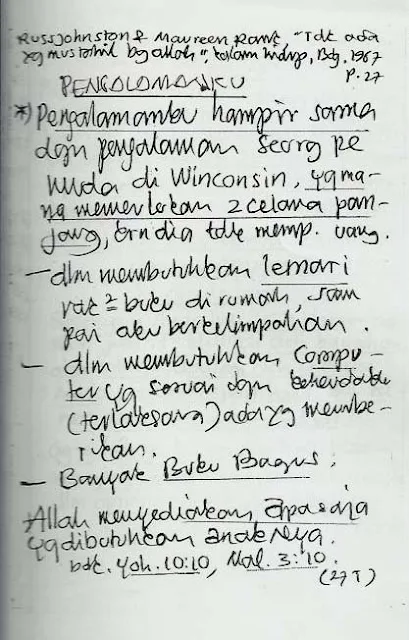 Russ Johnston & Maureen Rank "Tdk ada
yg mustahil bg allah", kalam hidup, Bdg, 1987
P. 27
PENGALAMANKU
*) Pengalamanku hampir sama
dgn pengalaman seorg pe
muda di Winconsin, yg ma-
na memerlukan 2 celana pan-
jang, krn dia tdk memp. uang.
- dlm membutuhkan lemari
rak² buku di rumah, sam
pai aku berkelimpahan.
- dlm membutuhkan Compu-
ter yg sesuai dgn kehendakku
(terlaksana) ada yg membe-
rikan.
- Banyak Buku Bagus;
Allah menyediakan apa saja
yg dibutuhkan anakNya.
bdk. Yoh. 10:10, Mal. 3:10.
(27 T)